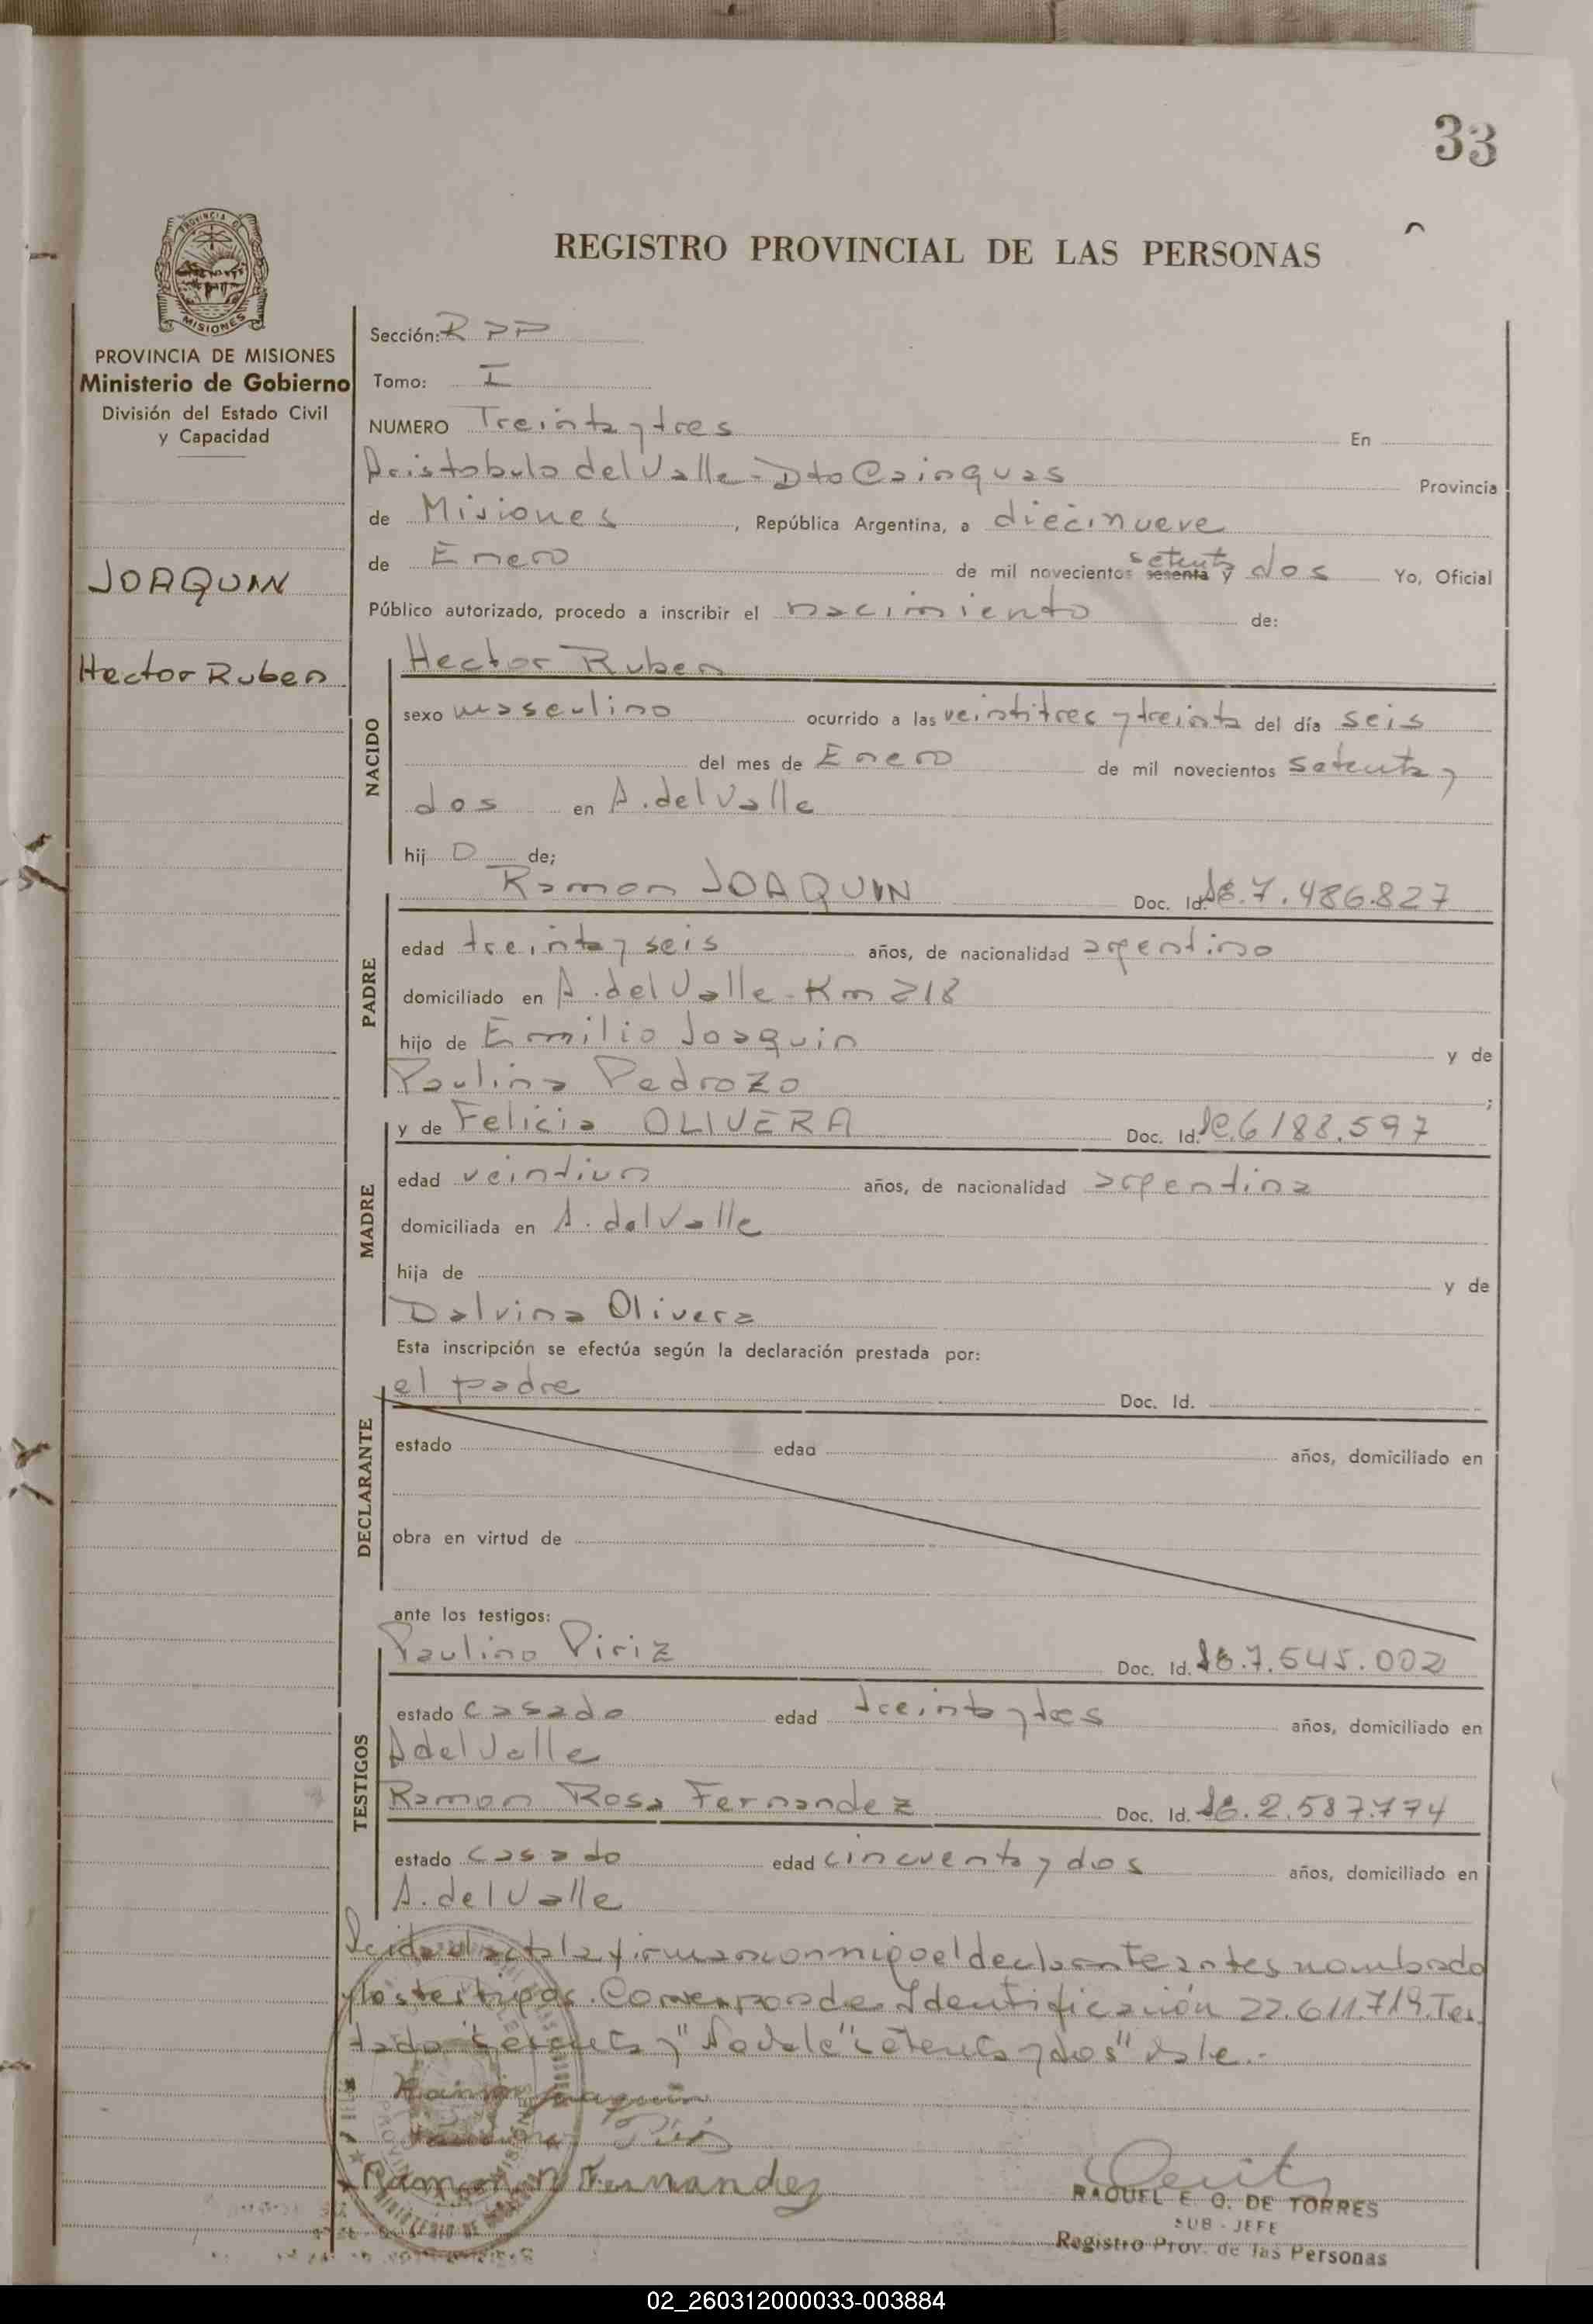 33
REGISTRO PROVINCIAL DE LAS PERSONAS
PROVINCIA DE
MISIONES
PROVINCIA DE MISIONES
Ministerio de Gobierno
División del Estado Civil
y Capacidad
JOAQUIN
Hector Ruben
Sección: R P P
Tomo: I
NUMERO Treinta y tres En
Aristobulo del Valle - Dto Cainguas Provincia
de Misiones, República Argentina, a diecinueve
de Enero de mil novecientos sesenta y setenta dos Yo, Oficial
Público autorizado, procedo a inscribir el nacimiento de:
NACIDO
Hector Ruben
sexo masculino ocurrido a las veintitres y treinta del día seis
del mes de Enero de mil novecientos setenta y
dos en A. del Valle
hijo de;
PADRE
Ramon JOAQUIN Doc. Id. 7.486.827
edad treinta y seis años, de nacionalidad argentino
domiciliado en A. del Valle - Km 218
hijo de Emilio Joaquin y de
Paulina Pedrozo ;
MADRE
y de Felicia OLIVERA Doc. Id. 6188.597
edad veintiun años, de nacionalidad argentina
domiciliada en A. del Valle
hija de y de
Dalvina Olivera
Esta inscripción se efectúa según la declaración prestada por:
DECLARANTE
el padre Doc. Id.
estado edad años, domiciliado en
obra en virtud de
ante los testigos:
TESTIGOS
Paulino Piriz Doc. Id. 7.545.002
estado casado edad treinta y tres años, domiciliado en
A del Valle
Ramon Rosa Fernandez Doc. Id. 2.587.774
estado casado edad cincuenta y dos años, domiciliado en
A. del Valle
Leida el acta la firman conmigo el declarante antes nombrado
y los testigos. Corresponde Identificación 22.611.719. Tes
tado "sesenta y" No vale "setenta y dos" vale.-
Ramón Joaquin
Piris
Ramon Fernandez
RAQUEL E. O. DE TORRES
SUB - JEFE
Registro Prov. de las Personas
02_260312000033-003884